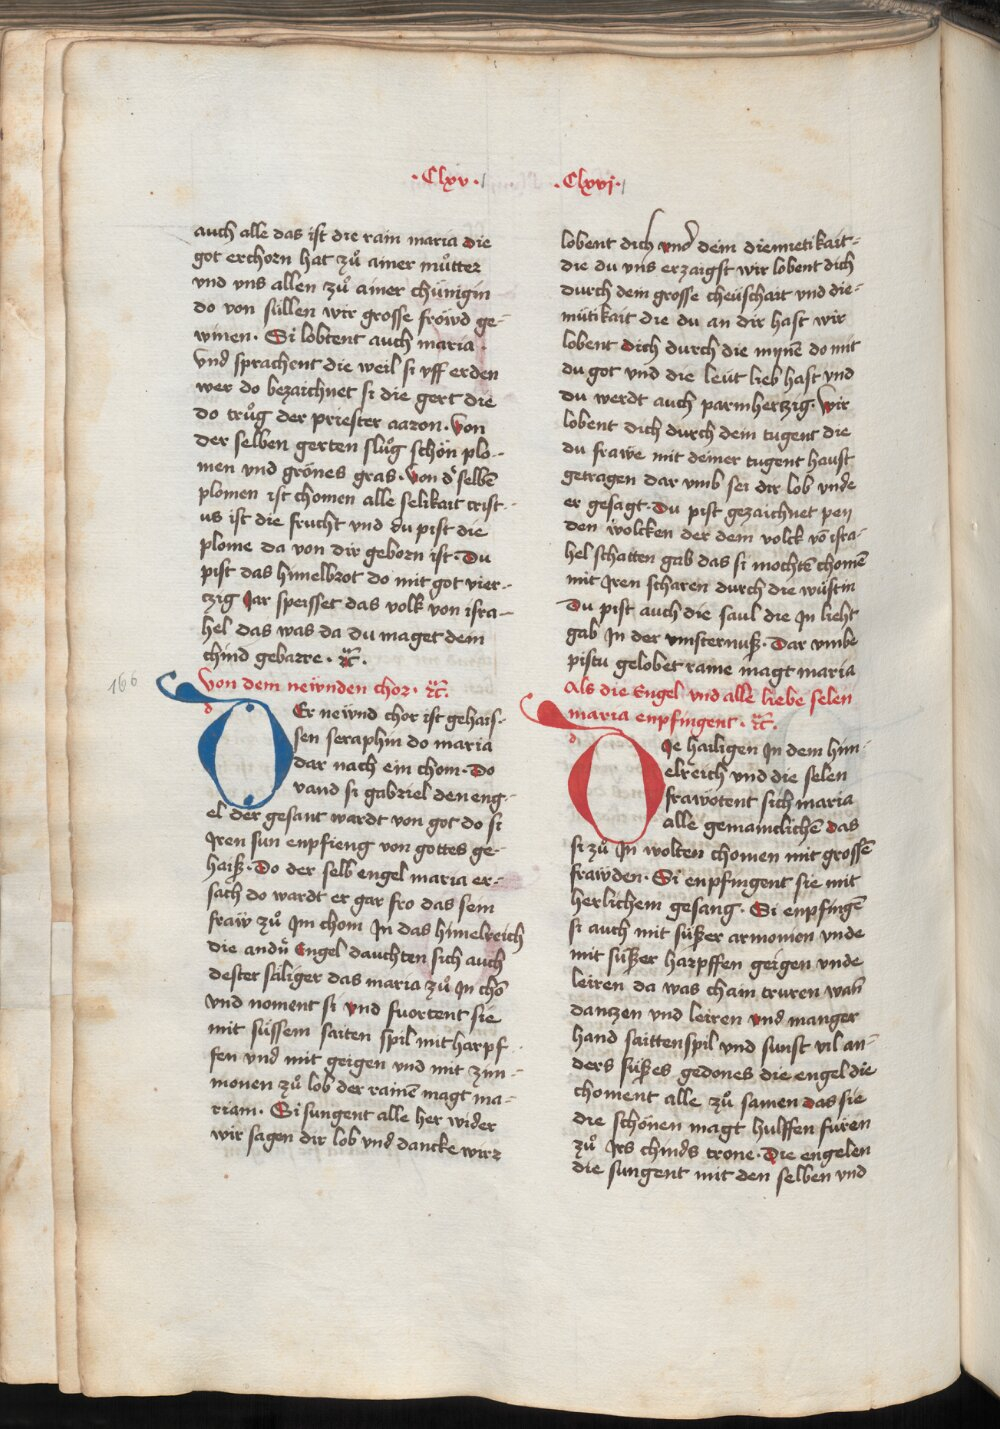 ·Clxv·
auch alle das ist die rain maria die
got erchorn hat zuͦ ainer muͦtter
vnd vns allen zuͦ ainer chünigin
do von süllen wir grosse fröwd ge-
winen· Si lobtent auch maria
vnd sprachent die weil si vff erden
wer do bezaichnet si die gert die
do truͦg der priester aaron· Von
der selben gerten sluͦg schön plo-
men und grönes gras· Von dͤ selbē
plomen ist chomen alle selikait crist-
us ist die frucht vnd du pist die
plome da von dir geborn ist· Du
pist das himelbrot do mit got vier-
tzig Jar speisset das volk von isra-
hel das was da du maget dein
chind gebarre· ꝛc̈·
166
Von dem newnden chor· ꝛc̈·
d
DEr newnd chor ist gehais-
sen seraphin do maria
dar nach ein chom· Do
vand si gabriel den eng-
el der gesant wardt von got do si
Jren sun enpfieng von gottes ge-
haiß· Do der selb engel maria er-
sach do wardt er gar fro das sein
fraw zuͦ Jm chom Jn das himelreich
die andn̄ Engel dauchten sich auch
dester säliger das maria zuͦ Jn chō
vnd noment si vnd fuortent sie
mit süssem saiten spil mit harpf-
fen vnd mit geigen und mit zim-
monen zuͦ lob der rainē magt ma-
riam· Si sungent alle her wider
wir sagen dir lob vnd dancke wirz
·Clxvj·
lobent dich vnd dein diemietikait-
die du vns erzaigst wir lobent dich
durch dein grosse cheüschait vnd die-
mütikait die du an dir hast wir
lobent dich durch die mynē do mit
du got vnd die leüt lieb hast vnd
du werdt auch parmhertzig· Wir
lobent dich durch dein tugent die
du frawe mit deiner tugent haust
getragen dar vmb sei dir lob vnde
er gesagt· Du pist gezaichnet pey
den wolcken der dem volck vō isra-
hel schatten gab das si mochtē chomē
mit Jren scharen durch die wüstin
Du pist auch die saul die Jn lieht
gab Jn der vinsternuß· Dar vmbe
pistu gelobet raine magt maria
Als die Engel vnd alle liebe selen
maria enpfingent· ꝛc̈·
d
DJe hailigen Jn dem him-
elreich vnd die selen
frawotent sich maria
alle gemainclichē das
si zuͦ Jn wolten chomen mit grossē
frawden· Si enpfingent sie mit
herlichem gesang· Si enpfingē
si auch mit süßer armonien vnde
mit süßer harpffen geigen vnde
leiren da was chain truren wan̄
dantzen vnd leiren vnd manger
hand saittenspil vnd sunst vil an-
ders süßes gedones die engel die
choment alle zuͦ samen das sie
die schönen magt hulffen füren
zuͦ Jrs chinds trone· Die engelen
die sungent mit den selben vnd